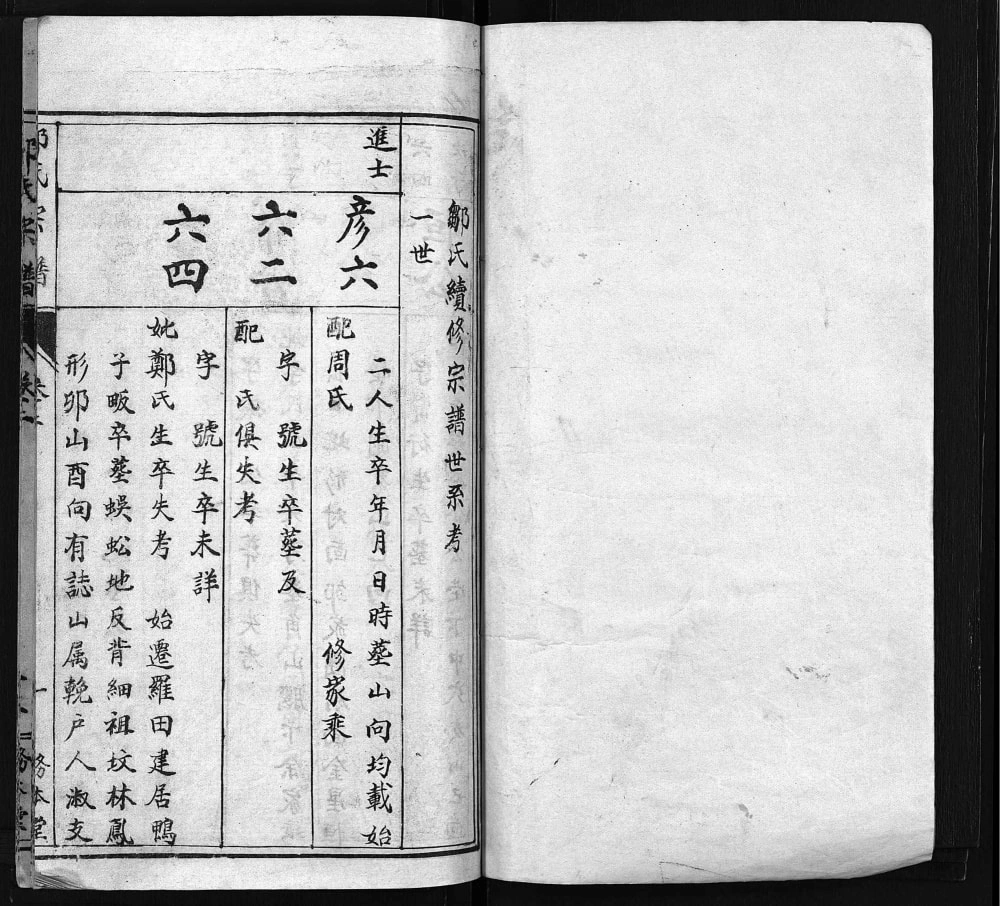 鄒氏續修宗譜世系考
一世
進士
彦六
二人生卒年月日時塟山向均載始
配周氏 修家乘
六二
字 號生卒塟及
配 氏俱失考
六四
字 號生卒未詳
妣鄭氏生卒失考 始遷羅田建居鴨
子畈卒塟蜈蚣地反背細祖坟林鳳
形卯山酉向有誌山属輓户人淑支
鄒氏宗譜
卷二
一
務本堂